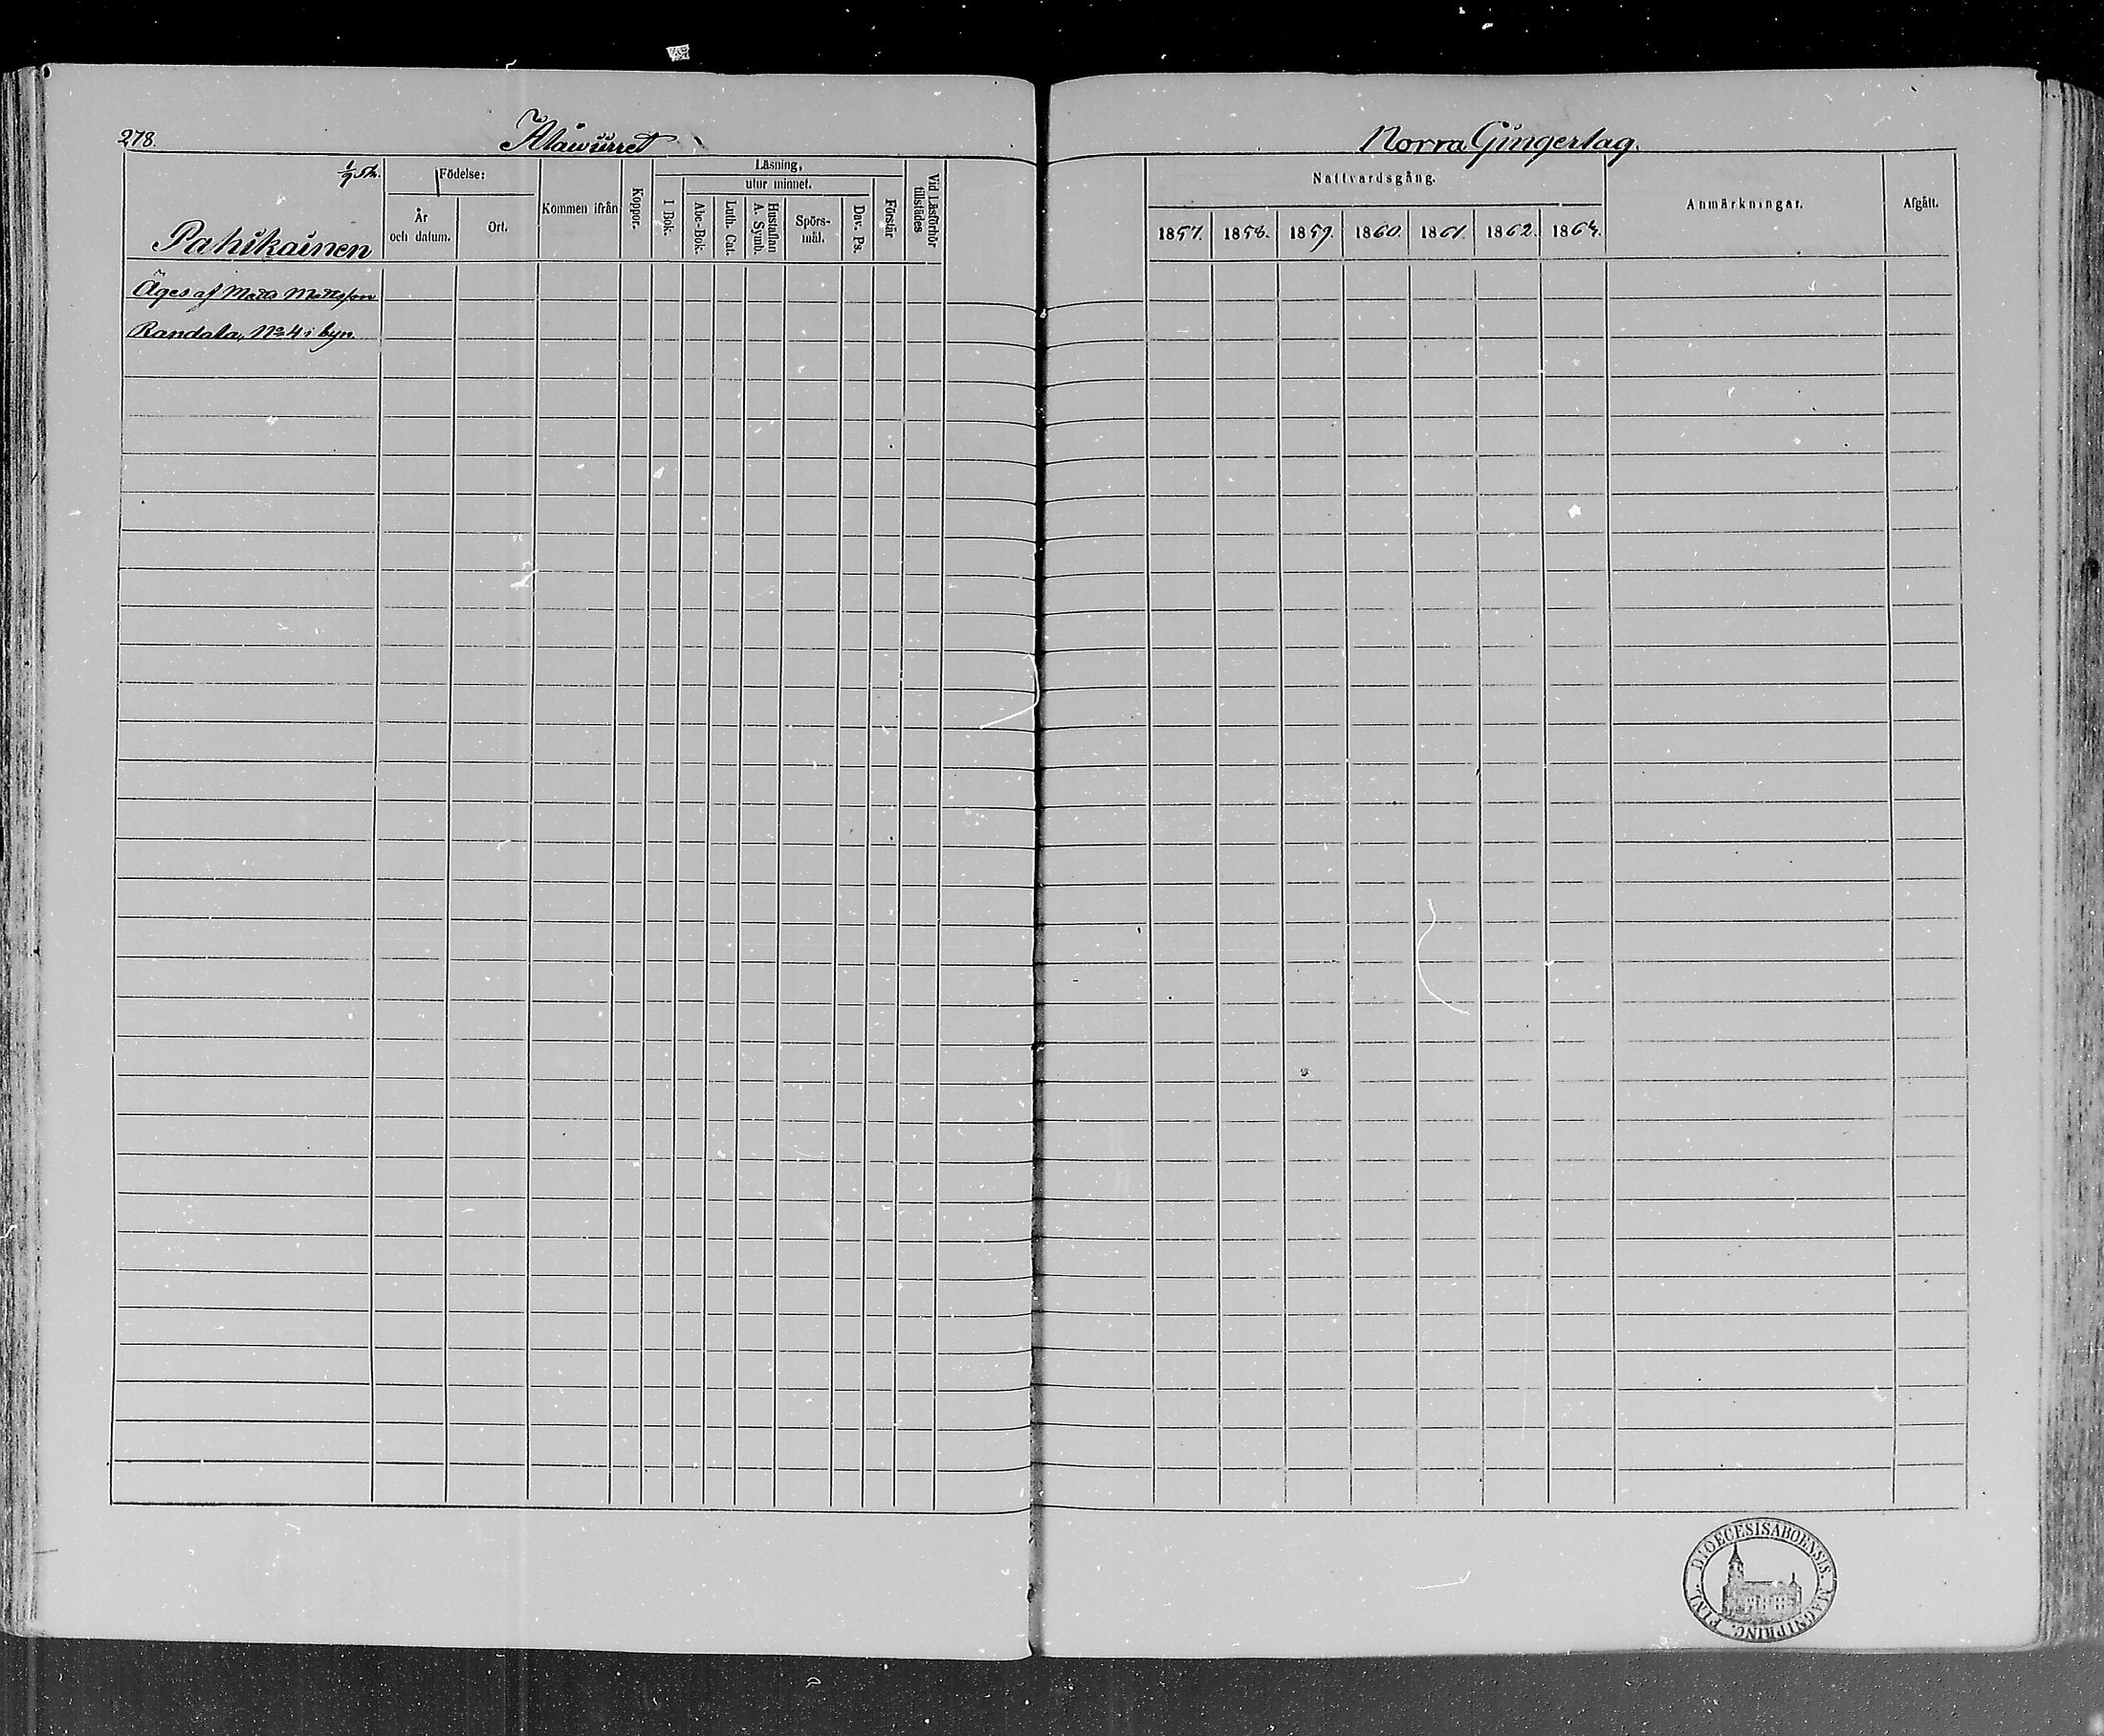 278.
Norra Gingerlag.
Pahikainen
Födelse:
År
och datum.
Ort.
Kommen ifrån
Koppor.
Läsning,
utur minnet.
I Bok.
Abc-Bok.
Luth. Cat.
Hustaflan
A. Symb.
Spörs-
mål.
Dav. Ps.
Förstår
Vid Läsförhör
tillstädes
Nattvardsgång.
1857.
1858.
1859.
1860.
1861.
1862.
Anmärkningar.
Afgått.
Äges af Matts Mattsson
Randala, No 4 i byn.
DIOECESIS ABOENSIS. MAGNI PRINC. FINL.